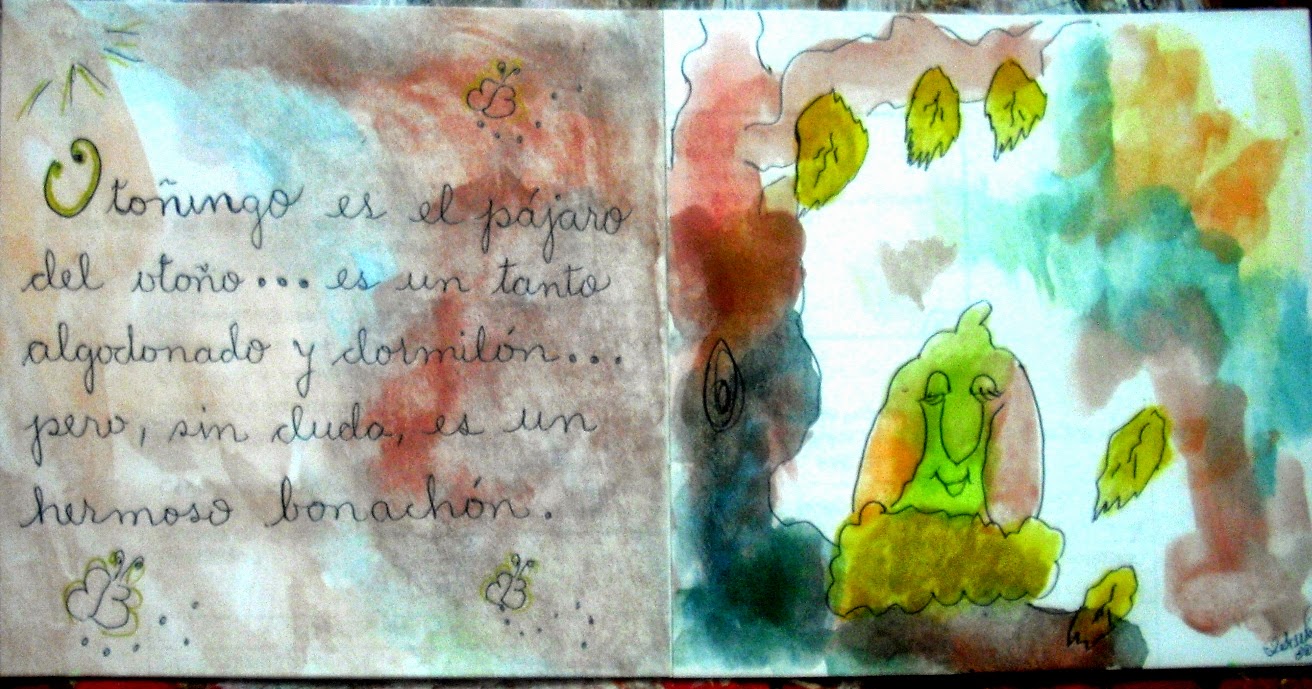 Otoñingo es el pájaro
del otoño... es un tanto
algodonado y dormilón...
pero, sin duda, es un
hermoso bonachón.